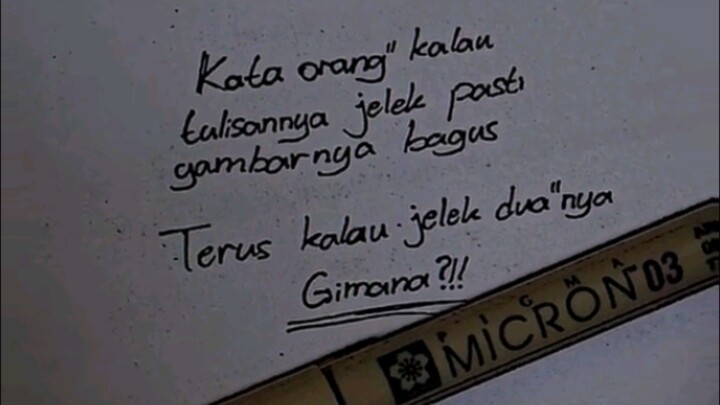 Kata orang" kalau
tulisannya jelek pasti
gambarnya bagus
Terus kalau jelek dua"nya
Gimana?!!
PIGMA
MICRON 03